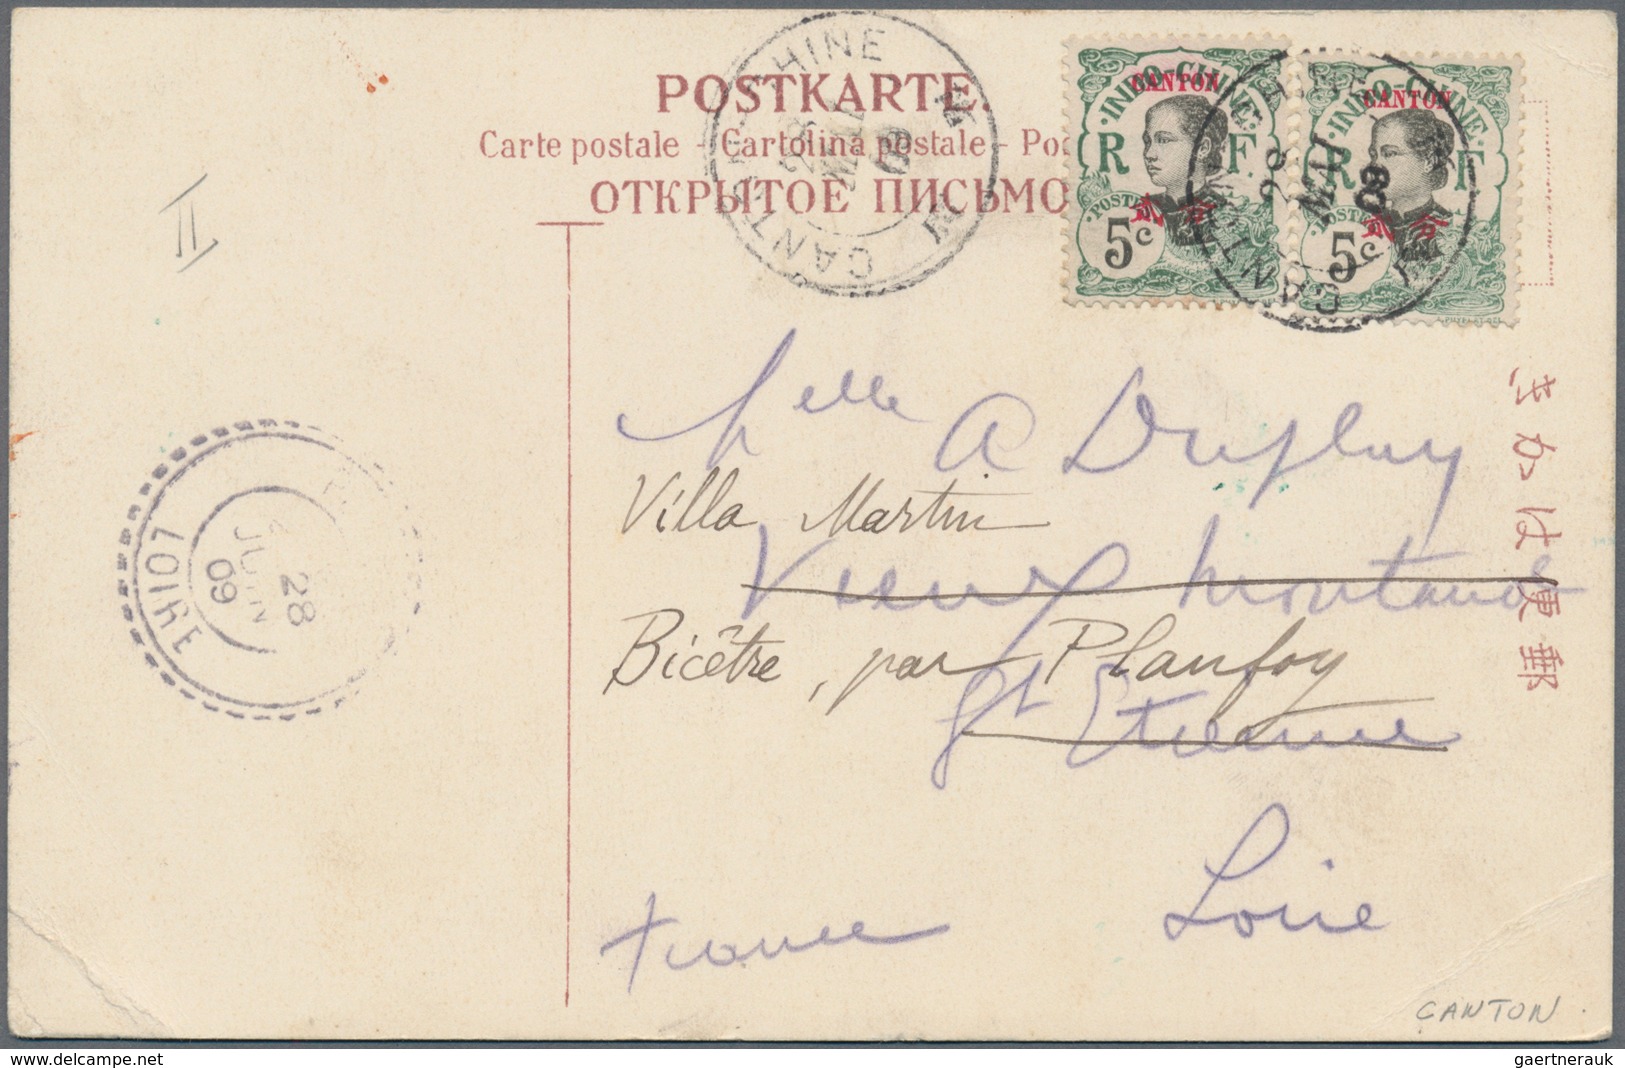 POSTKARTE.
Carte postale - Cartolina postale - Po
ОТКРЫТОЕ ПИСЬМО
CANTON - CHINE
28
MAI
09
INDO-CHINE
CANTON
R F.
POSTES
5c
INDO-CHINE
CANTON
R F
POSTES
5c
28
MAI
09
II
きがは便郵
Melle A Dupluy
Villa Martin
Vieux Montaud
Bicêtre, par Planfoy
St Etienne
Loire
France
28
JUIN
09
LOIRE
CANTON
gaertnerauk